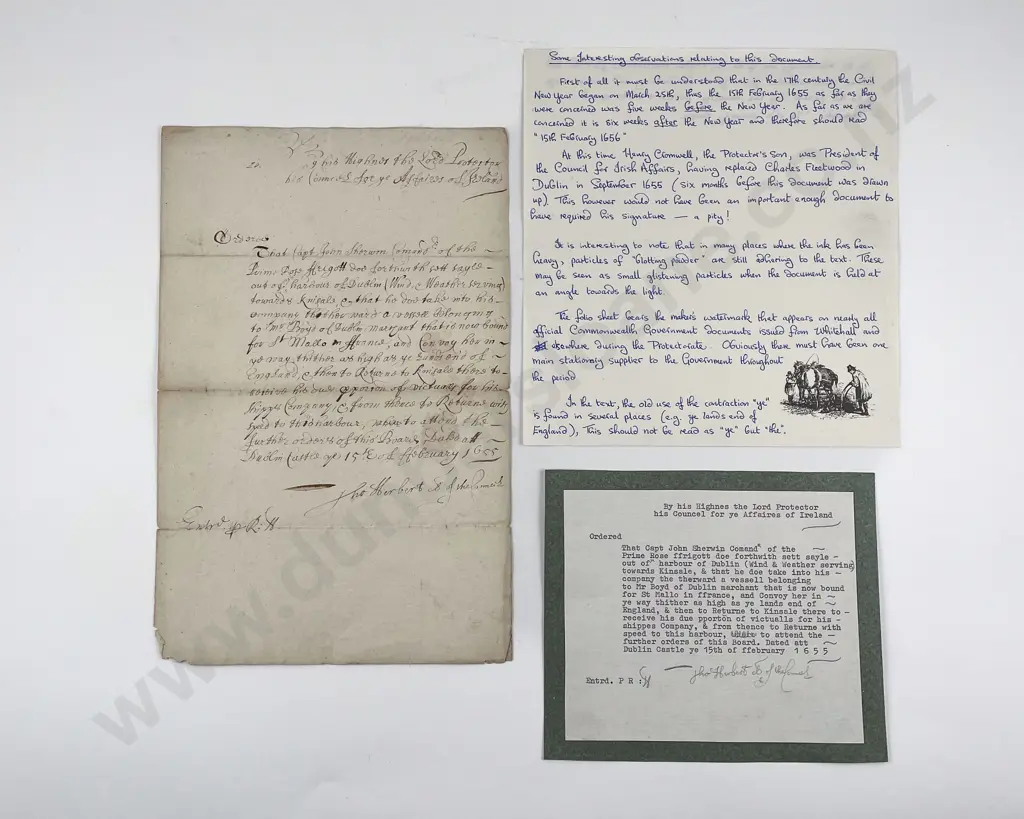 By his Highnes the Lord Protector
his Councel for ye Affaires of Ireland
Ordered
That Capt John Sherwin Comandr of the
Prime Rose ffrigott doe forthwith sett sayle
out of harbour of Dublin (Wind & Weather serving)
towards Kinsale, & that he doe take into his
company thetherward a vessell belonging
to Mr Boyd of Dublin marchant that is now bound
for St Mallo in ffrance, and Convoy her in
ye way thither as high as ye Lands end of
England, & then to Returne to Kinsale there to
receive his due pportion of victualls for his
shipps Company, & from thence to Returne with
speed to this harbour, to attend the
further orders of this Board. Dated att
Dublin Castle ye 15th of ffebruary 1655
Tho: Herbert of the Councell
Entrd p R:
Some Interesting observations relating to this document
First of all it must be understood that in the 17th century the Civil
New Year began on March 25th, thus the 15th February 1655 as far as they
were concerned was five weeks before the New Year. As far as we are
concerned it is six weeks after the New Year and therefore should read
"15th February 1656"
At this time Henry Cromwell, the Protector's Son, was President of
the Council for Irish Affairs, having replaced Charles Fleetwood in
Dublin in September 1655 (six months before this document was drawn
up). This however would not have been an important enough document to
have required his signature — a pity!
It is interesting to note that in many places where the ink has been
heavy, particles of "blotting powder" are still adhering to the text. These
may be seen as small glistening particles when the document is held at
an angle towards the light.
The folio sheet bears the maker's watermark that appears on nearly all
official Commonwealth Government documents issued from Whitehall and
elsewhere during the Protectorate. Obviously there must have been one
main stationery supplier to the Government throughout
the period
In the text, the old use of the contraction "ye"
is found in several places (e.g. ye lands end of
England), This should not be read as "ye" but "the".
By his Highnes the Lord Protector
his Councel for ye Affaires of Ireland
Ordered
That Capt John Sherwin Comandr of the
Prime Rose ffrigott doe forthwith sett sayle -
out of harbour of Dublin (Wind & Weather serving)
towards Kinsale, & that he doe take into his -
company the therward a vessell belonging
to Mr Boyd of Dublin marchant that is now bound
for St Mallo in ffrance, and Convoy her in
ye way thither as high as ye lands end of
England, & then to Returne to Kinsale there to -
receive his due pportón of victualls for his -
shippes Company, & from thence to Returne with
speed to this harbour, to attend the -
further orders of this Board. Dated att
Dublin Castle ye 15th of ffebruary 1 6 5 5
Tho: Herbert of the Councell
Entrd. P R :